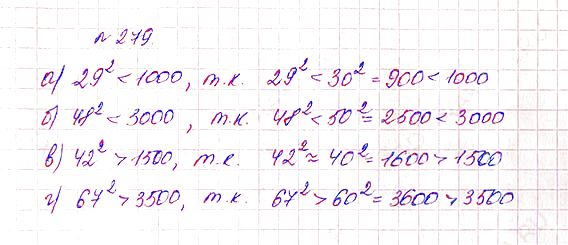 № 279
а) 29² < 1000, т.к. 29² < 30² = 900 < 1000
б) 48² < 3000, т.к. 48² < 50² = 2500 < 3000
в) 42² > 1500, т.к. 42² ≈ 40² = 1600 > 1500
г) 67² > 3500, т.к. 67² > 60² = 3600 > 3500